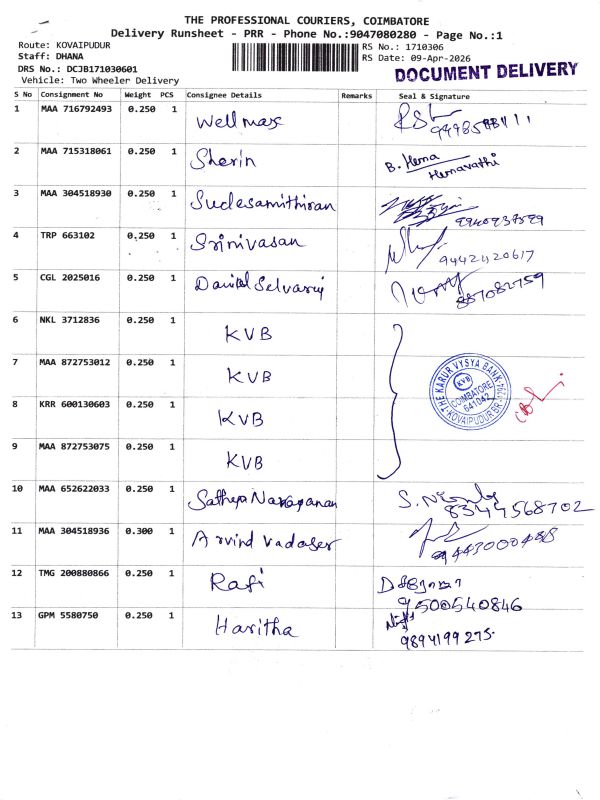 THE PROFESSIONAL COURIERS, COIMBATORE
Delivery Runsheet - PRR - Phone No.:9047080280 - Page No.:1
Route: KOVAIPUDUR
Staff: DHANA
DRS No.: DCJB171030601
Vehicle: Two Wheeler Delivery
RS No.: 1710306
RS Date: 09-Apr-2026
DOCUMENT DELIVERY
S No Consignment No Weight PCS Consignee Details Remarks Seal & Signature
1 MAA 716792493 0.250 1 Wellmax
2 MAA 715318061 0.250 1 Sherin B. Hema Hemavathi
3 MAA 304518930 0.250 1
4 TRP 663102 0.250 1 Srinivasan 9442420617
5 CGL 2025016 0.250 1
6 NKL 3712836 0.250 1 KVB
7 MAA 872753012 0.250 1 KVB
8 KRR 600130603 0.250 1 KVB
9 MAA 872753075 0.250 1 KVB
THE KARUR VYSYA BANK
KVB
COIMBATORE
641042
KOVAIPUDUR BR.
10 MAA 652622033 0.250 1 Sathya Narayanan 8344568702
11 MAA 304518936 0.300 1 Arvind
12 TMG 200880866 0.250 1 Rafi 9500540846
13 GPM 5580750 0.250 1 Haritha 9894199275